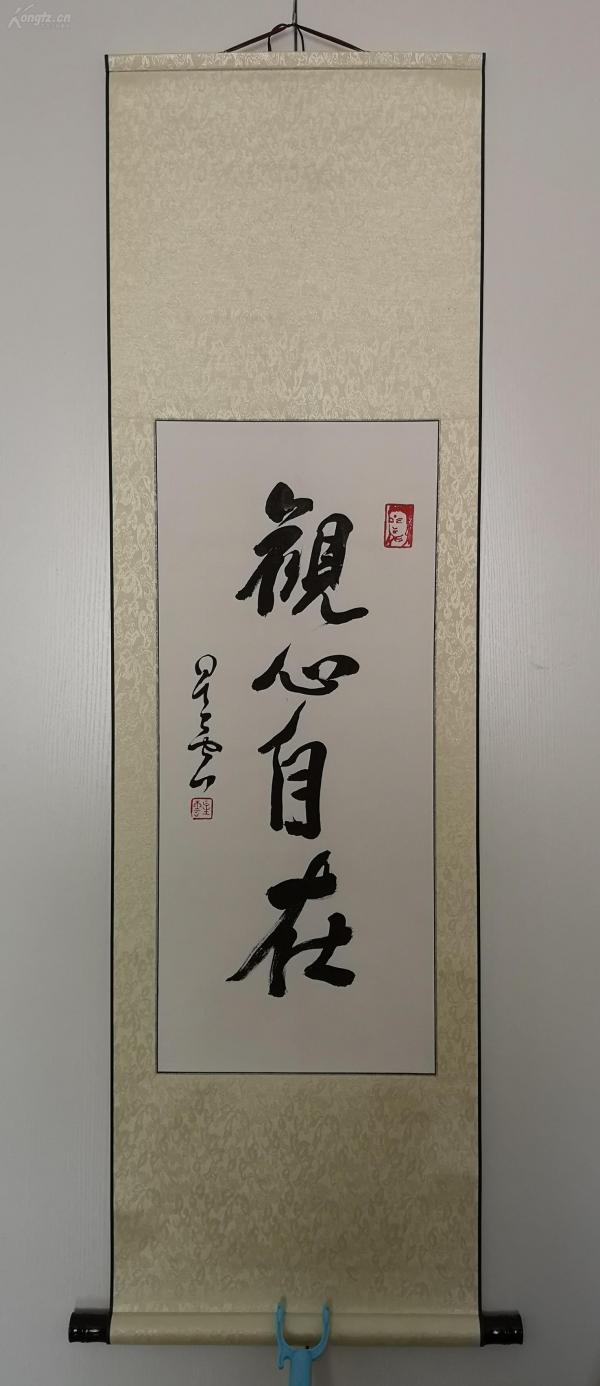 Kongfz.cn
觀心自在
星雲
星雲